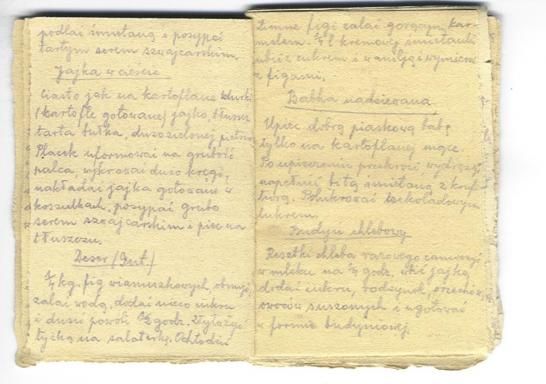 podlać śmietaną i posypać
tartym serem szwajcarskim.
Jajka w cieście
Ciasto jak na kartoflane kluski
(kartofle gotowane) jajko, tłuszcz
tarta bułka, dużo zielonej pietruszki
Placek uformować na grubość
palca, wykrawać duże kręgi,
nakładać jajka gotowane w
koszulkach, posypać grubo
serem szwajcarskim i piec na
tłuszczu.
Deser
1/4 kg. fig wianuszkowych, obmyć,
zalać wodą, dodać nieco cukru
i dusić powoli godz. Wyłożyć
łyżką na salaterkę. Ochłodzić
Zimne figi zalać gorącym kar-
melem. 1/4 l kremowej śmietanki
ubić z cukrem i wanilją wymieszać
z figami.
Babka nadziewana.
Upiec dobrą piaskową babę
tylko na kartoflanej mące.
Po upieczeniu przekroić wydrążyć
napełnić bitą śmietaną z
Polukrować czekoladowym
lukrem.
Budyń chlebowy
Resztki chleba razowego namoczyć
w mleku na 1/2 godz. jajka,
dodać cukru, rodzynek, orzechów,
owoców suszonych i ugotować
w formie budyniowej.